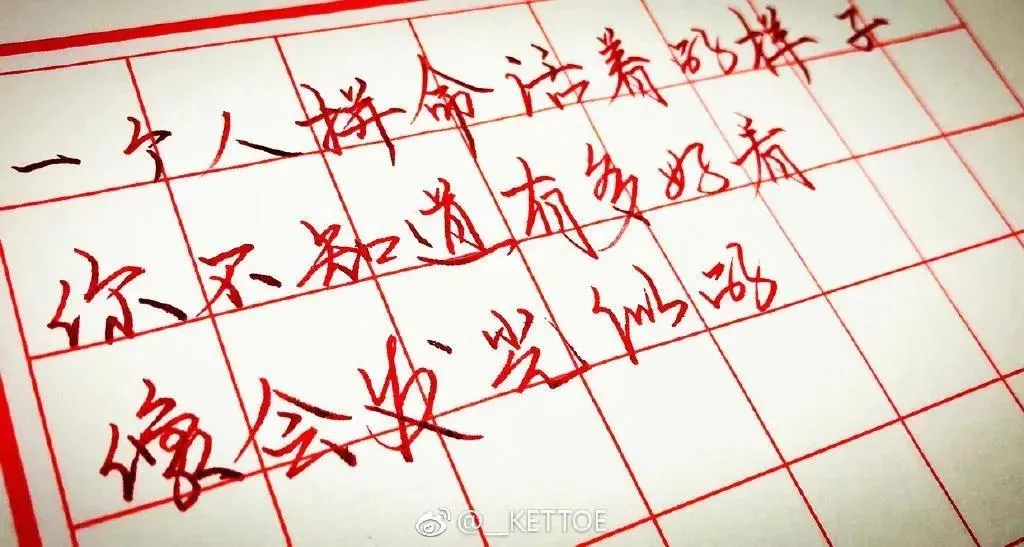 一个人拼命活着的样子
你不知道有多好看
像会发光似的
@__KETTOE